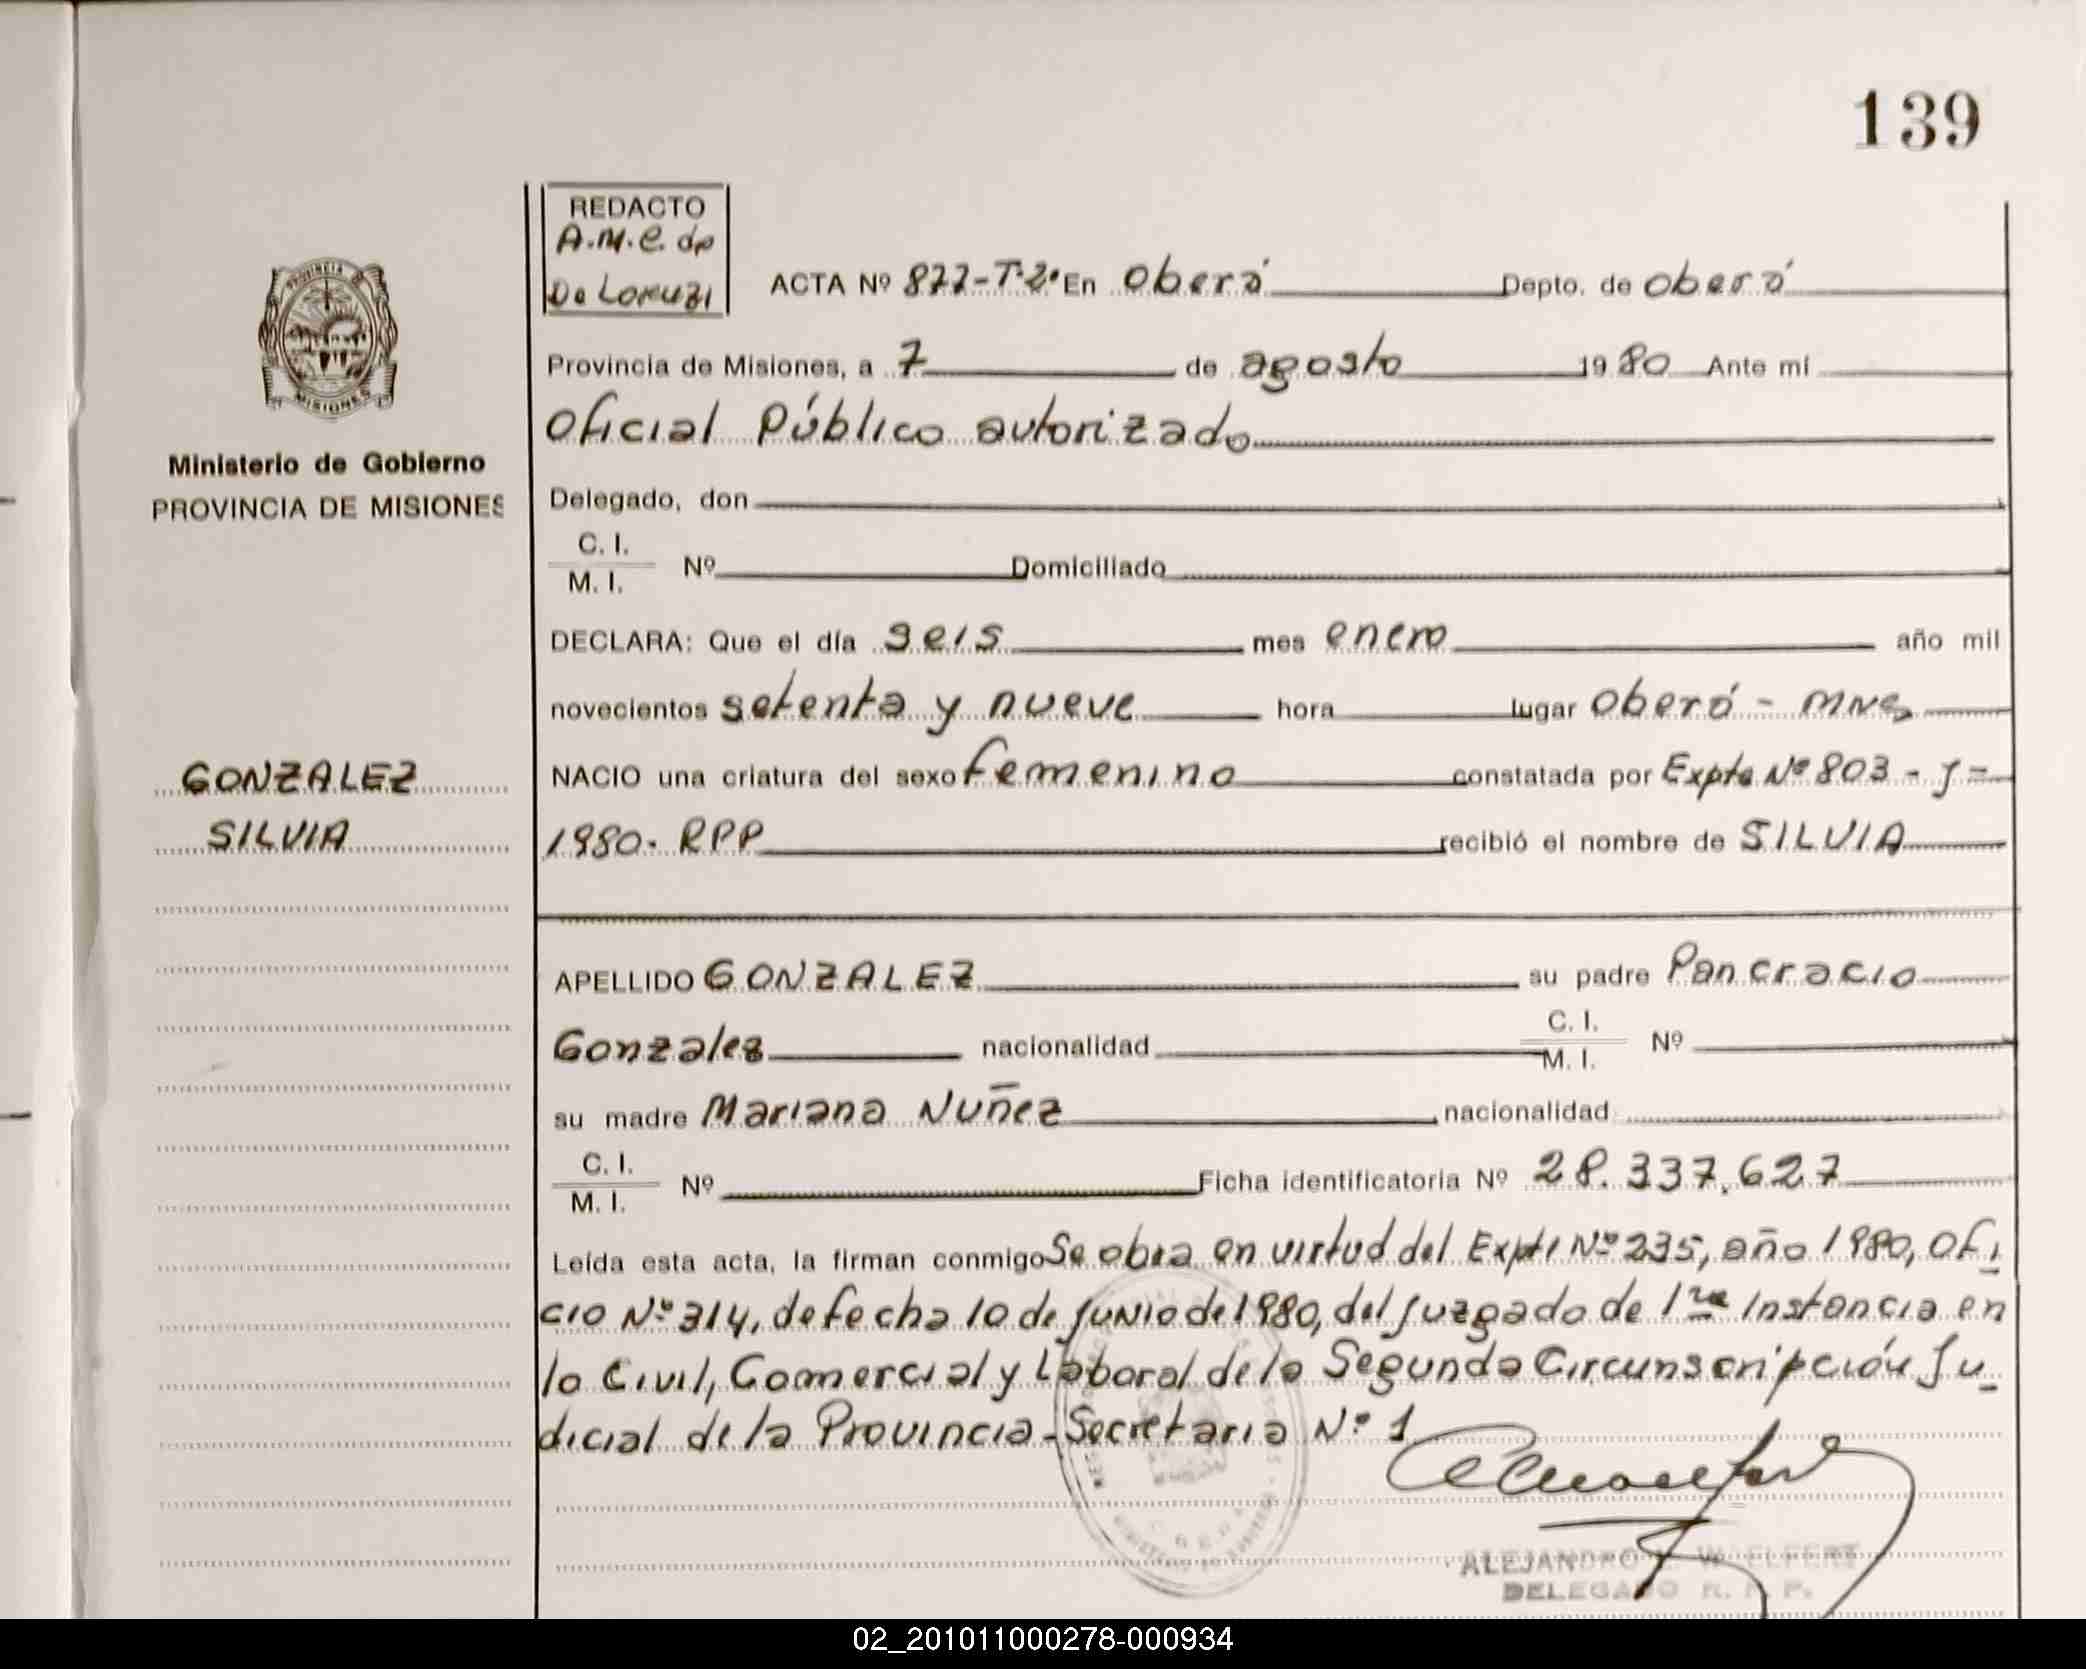 139
REDACTO
A.M.C. de
De Loruzi
ACTA Nº 877-T-2º En Oberá Depto. de Oberá
Provincia de Misiones, a 7 de agosto 1980 Ante mí
Oficial Público autorizado
Delegado, don
C. I.
M. I. Nº Domiciliado
DECLARA: Que el día seis mes enero año mil
novecientos setenta y nueve hora lugar Oberá - Mnes
NACIO una criatura del sexo femenino constatada por Expte Nº 803 - J -
1980. RPP recibió el nombre de SILVIA
APELLIDO GONZALEZ su padre Pancracio
Gonzalez nacionalidad C. I. M. I. Nº
su madre Mariana Nuñez nacionalidad
C. I.
M. I. Nº Ficha identificatoria Nº 28.337.627
Leída esta acta, la firman conmigo Se obra en virtud del Expte Nº 235, año 1980, Ofi-
cio Nº 314, de fecha 10 de Junio de 1980, del Juzgado de 1ra Instancia en
lo Civil, Comercial y Laboral de la Segunda Circunscripción Ju-
dicial de la Provincia - Secretaria Nº 1
ALEJANDRO WAELFERT
DELEGADO R. P. P.
PROVINCIA
MISIONES
Ministerio de Gobierno
PROVINCIA DE MISIONES
GONZALEZ
SILVIA
02_201011000278-000934